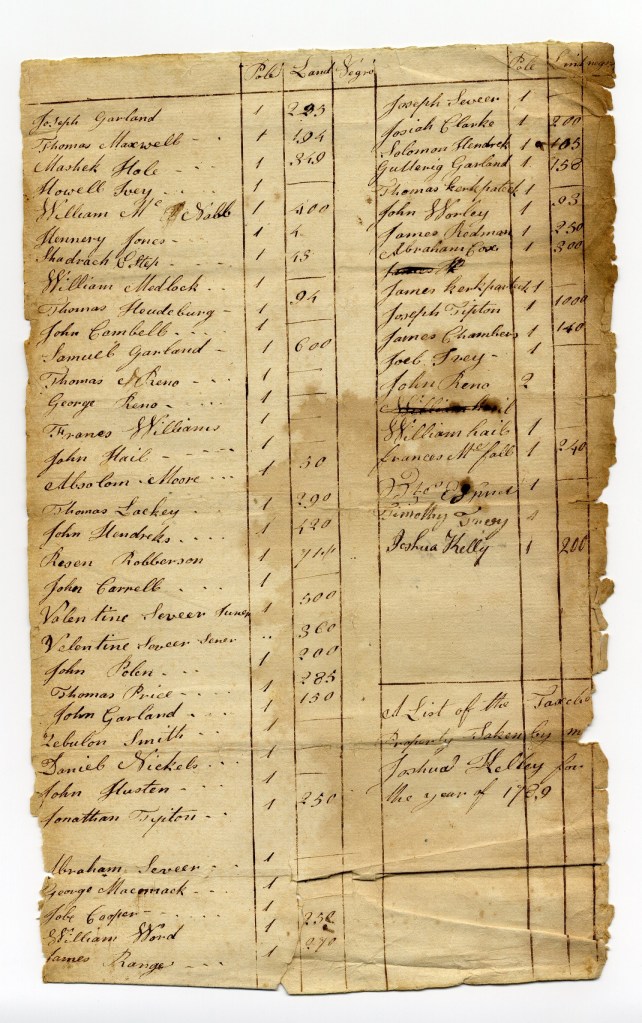 Pole Land Negro
Joseph Garland 1 293
Thomas Maxwell - - 1 494
Mashek Hole - - 1 349
Howell Ivey - - - 1 —
William Mc Nabb 1 400
Hennery Jones - - 1 4
Shadrach Estep - - 1 43
William Medlock - - 1 —
Thomas Houdeburg - 94
John Cambell - - - 1 —
Samuel Garland - 1 600
Thomas Reno - - 1 —
George Reno - - - 1 —
Frances Williams 1
John Hail - - - - 1 —
Absolom Moore - - - 1 50
Thomas Lackey - - - 1 290
John Hendreks - - - 1 420
Rosen Robberson 1
John Carrell - - - 1 —
Valentine Seveer Juner 1 500
Velentine Seveer Sener - - 360
John Polen - - - 1 200
Thomas Price - - - - 1 285
John Garland - - - - 1 150
Zebulon Smith - - - 1
Daniel Nickels - - - 1 —
John Husten - - - - 1 —
Jonathan Tipton - - - 1 250
Abraham Seveer - - - 1 —
George Macomack - - - 1 —
Jobe Cooper - - - - 1 —
William Word 1 250
James Range - - - 1 270
Pole Land negro
Joseph Seveer 1 —
Josiah Clarke 1 200
Solomon Hendrek 1 105
Gutterig Garland 1 150
Thomas kerkpateck 1 —
John Worley 1 93
James Redman 1 250
Abraham Cox 1 300
James K
James kerkpartek 1 —
Joseph Tipton 1 1000
James Chambers 1 140
Joel Ivey - 1
John Reno 2
William hail
William hail 1 —
frances Mc fall 1 240
1 —
Timothy
Joshua Kelly - 1 200
A List of the Taxable
Property Taken by m
Joshua Kelley for
the year of 1789